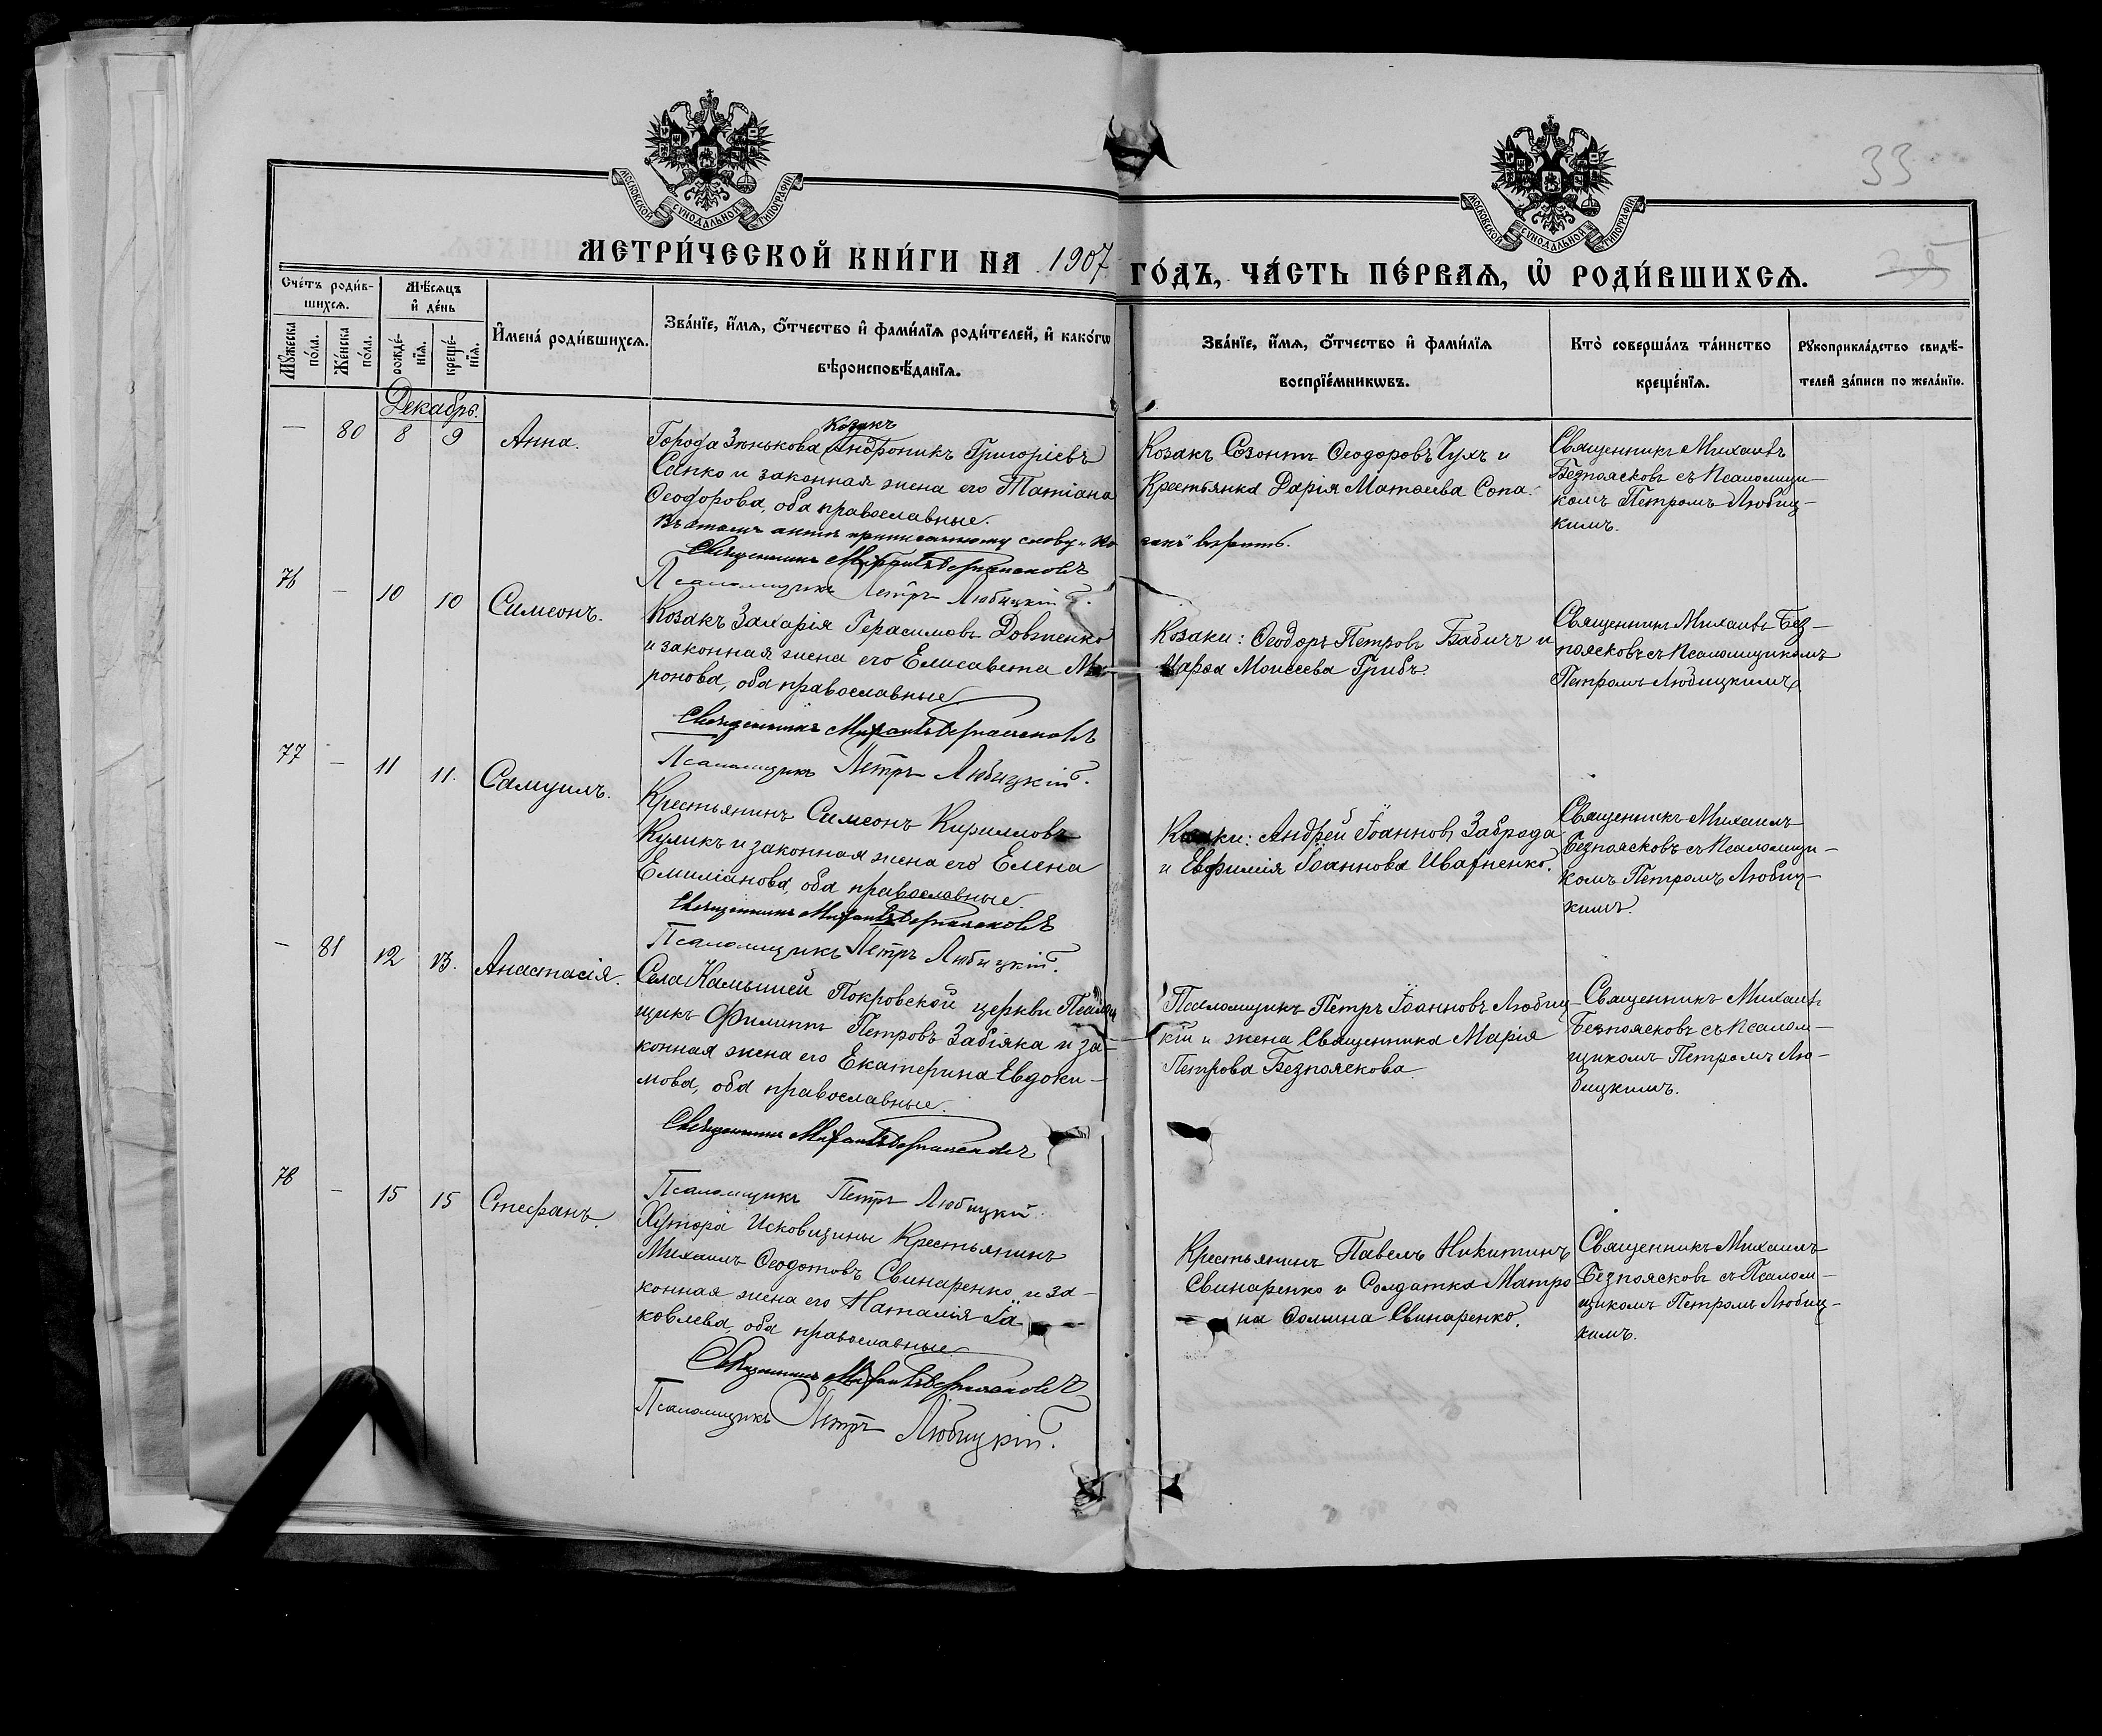 МОСКОВСКОЙ СѴНОДАЛЬНОЙ ТИПОГРАФІИ
МОСКОВСКОЙ СѴНОДАЛЬНОЙ ТИПОГРАФІИ
33
МЕТРИ́ЧЕСКОЙ КНИ́ГИ НА 1907 ГО́ДЪ, ЧА́СТЬ ПЕ́РВАѦ, Ѡ҆ РОДИ́ВШИХСѦ.
Сче́тъ роди́в-
шихсѧ.
Мѣ́сѧцъ
и҆ де́нь
Мꙋ́жеска
по́ла.
Же́нска
по́ла.
рожде́-
нїѧ.
креще́-
нїѧ.
И҆мена̀ роди́вшихсѧ.
Зва́нїе, и҆́мѧ, ѻ҆́тчество и҆ фами́лїѧ роди́телей, и҆ како́гѡ
вѣроисповѣ́данїѧ.
Зва́нїе, и҆́мѧ, ѻ҆́тчество и҆ фами́лїѧ
воспрїе́мникѡвъ.
Кто̀ соверша́лъ та́инство
креще́нїѧ.
Рꙋкоприкла́дство свидѣ́-
телей за́писи по жела́нїю.
Декабрь.
— 80 8 9 Анна.
козакъ
Города Зѣнькова Андроникъ Григоріевъ
Сапко и законная жена его Татіана
Ѳеодорова, оба православные.
Въ этомъ актѣ приписанному слову „козакъ" вѣрить.
Священникъ Михаилъ Безпоясковъ
Псаломщикъ Петръ Любицкій.
Козакъ Созонтъ Ѳеодоровъ Чухъ и
Крестьянка Дарія Матѳеева Сопа.
Священникъ Михаилъ
Безпоясковъ съ Псаломщи-
комъ Петромъ Любиц-
кимъ.
76 — 10 10 Симеонъ.
Козакъ Захарія Герасимовъ Довженко
и законная жена его Елисавета Ми-
ронова, оба православные
Священникъ Михаилъ Безпоясковъ
Псаломщикъ Петръ Любицкій.
Козаки: Ѳеодоръ Петровъ Бабичъ и
Марѳа Моисеева Грибъ.
Священникъ Михаилъ Без-
поясковъ съ Псаломщикомъ
Петромъ Любицкимъ
77 — 11 11. Самуилъ.
Крестьянинъ Симеонъ Кирилловъ
Куликъ и законная жена его Елена
Емиліанова, оба православные.
Священникъ Михаилъ Безпоясковъ
Псаломщикъ Петръ Любицкій.
Козаки: Андрей Іоанновъ Заброда
и Евфимія Іоаннова Ивахненко.
Священникъ Михаилъ
Безпоясковъ съ Псаломщи-
комъ Петромъ Любиц-
кимъ.
— 81 12 13. Анастасія.
Села Камышей Покровской церкви Псалом-
щикъ Филиппъ Петровъ Забіяка и за-
конная жена его Екатерина Евдоки-
мова, оба православные.
Священникъ Михаилъ Безпоясковъ
Псаломщикъ Петръ Любицкій
Псаломщикъ Петръ Іоанновъ Любиц-
кій и жена Священника Марія
Петрова Безпояскова
Священникъ Михаилъ
Безпоясковъ съ Псалом-
щикомъ Петромъ Лю-
бицкимъ.
78 — 15 15 Стефанъ.
Хутора Исковщины Крестьянинъ
Михаилъ Ѳеодотовъ Свинаренко и за-
конная жена его Наталія Іа-
ковлева, оба православные
Священникъ Михаилъ Безпоясковъ
Псаломщикъ Петръ Любицкій.
Крестьянинъ Павелъ Никитинъ
Свинаренко и Солдатка Матро
на Ѳомина Свинаренко.
Священникъ Михаилъ
Безпоясковъ съ Псалом-
щикомъ Петромъ Любиц-
кимъ.